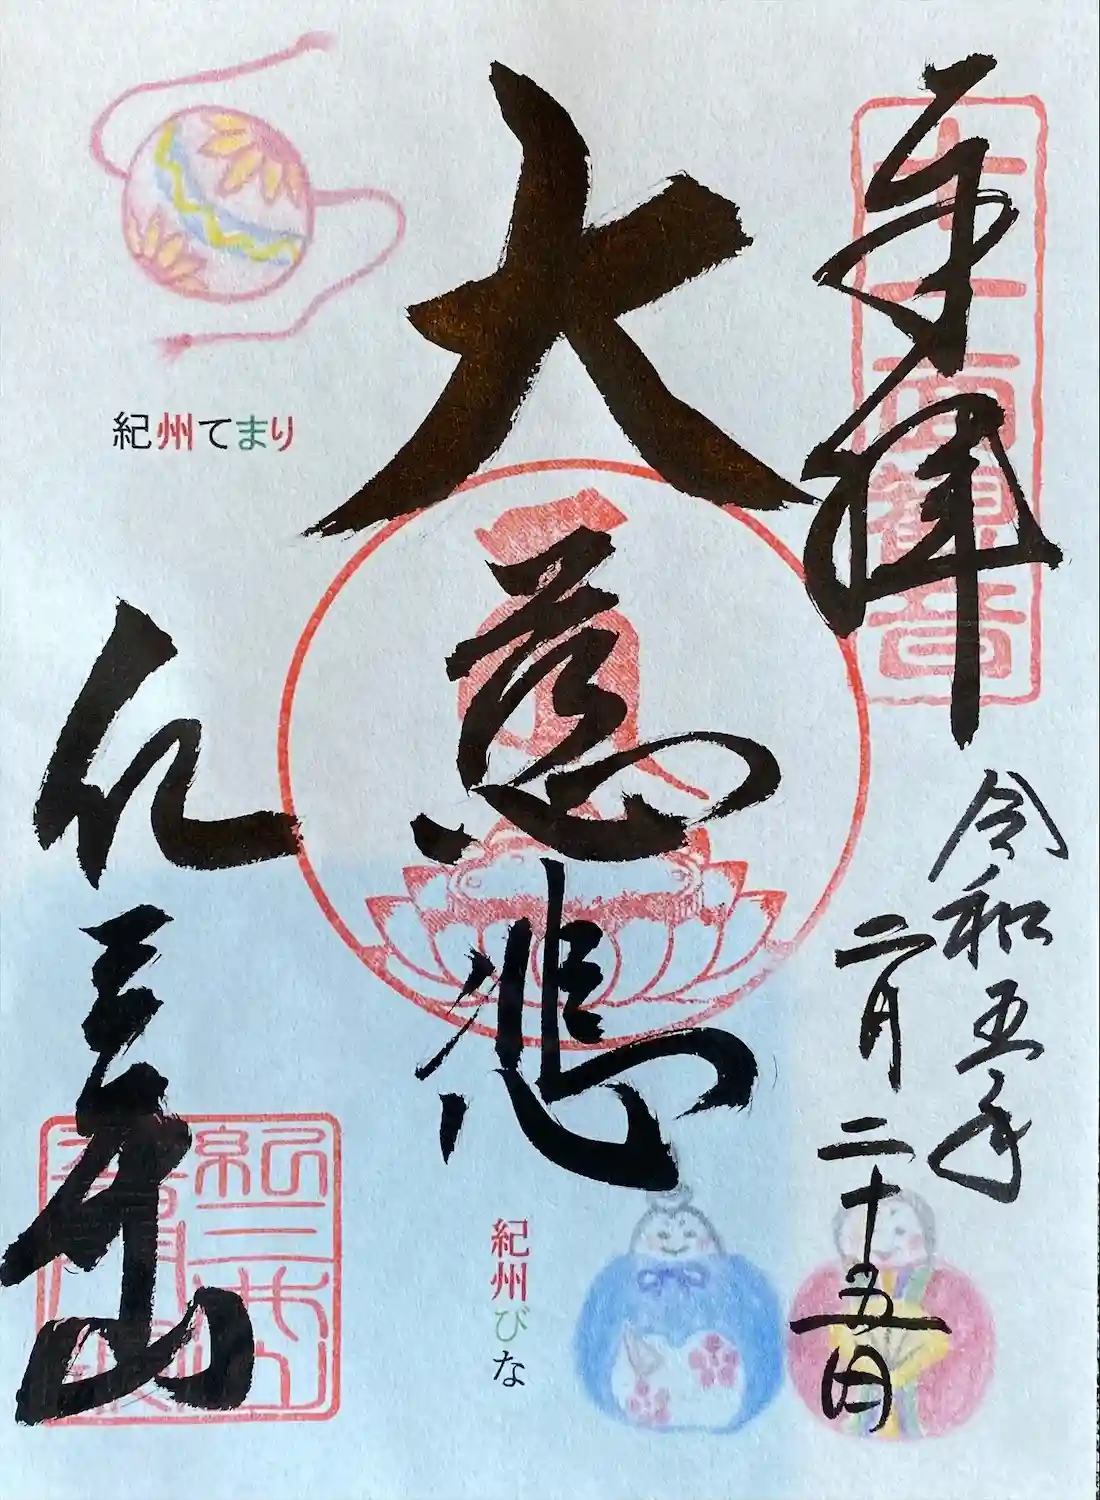 奉拝
十一面観音
令和五年
二月二十五日
大慈悲
紀三井山
紀三井山
紀州てまり
紀州びな